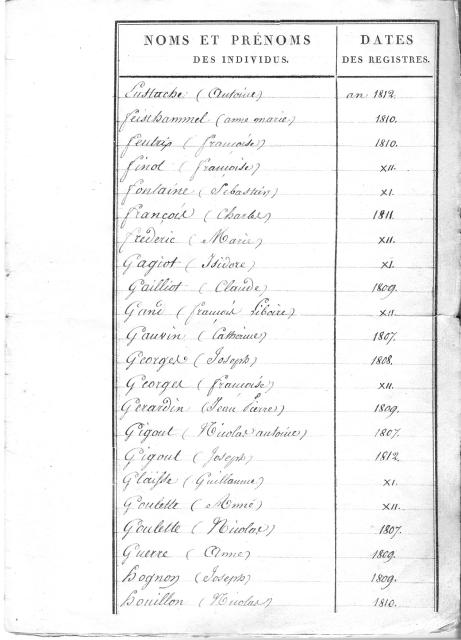 NOMS ET PRÉNOMS DES INDIVIDUS. DATES DES REGISTRES.
Eustache (Antoine) an 1812.
Feishammel (anne marie) 1810.
Feutrip (françoise) 1810.
Finot (françoise) XII.
Fontaine (Sébastien) XI.
François (Charles) 1811.
Fréderic (Marie) XII.
Gagiot (Isidore) XI.
Gailliot (Claude) 1809.
Gand (françois Liboire) XII.
Gauvin (Catherine) 1807.
Georges (Joseph) 1808.
Georges (françoise) XII.
Gerardin (Jean Pierre) 1809.
Gigout (Nicolas antoine) 1807.
Gigout (Joseph) 1812.
Glaisse (Guillaume) XI.
Goulette (Anne) XII.
Goulette (Nicolas) 1807.
Guerre (Anne) 1809.
hognon (Joseph) 1809.
houillon (Nicolas) 1810.